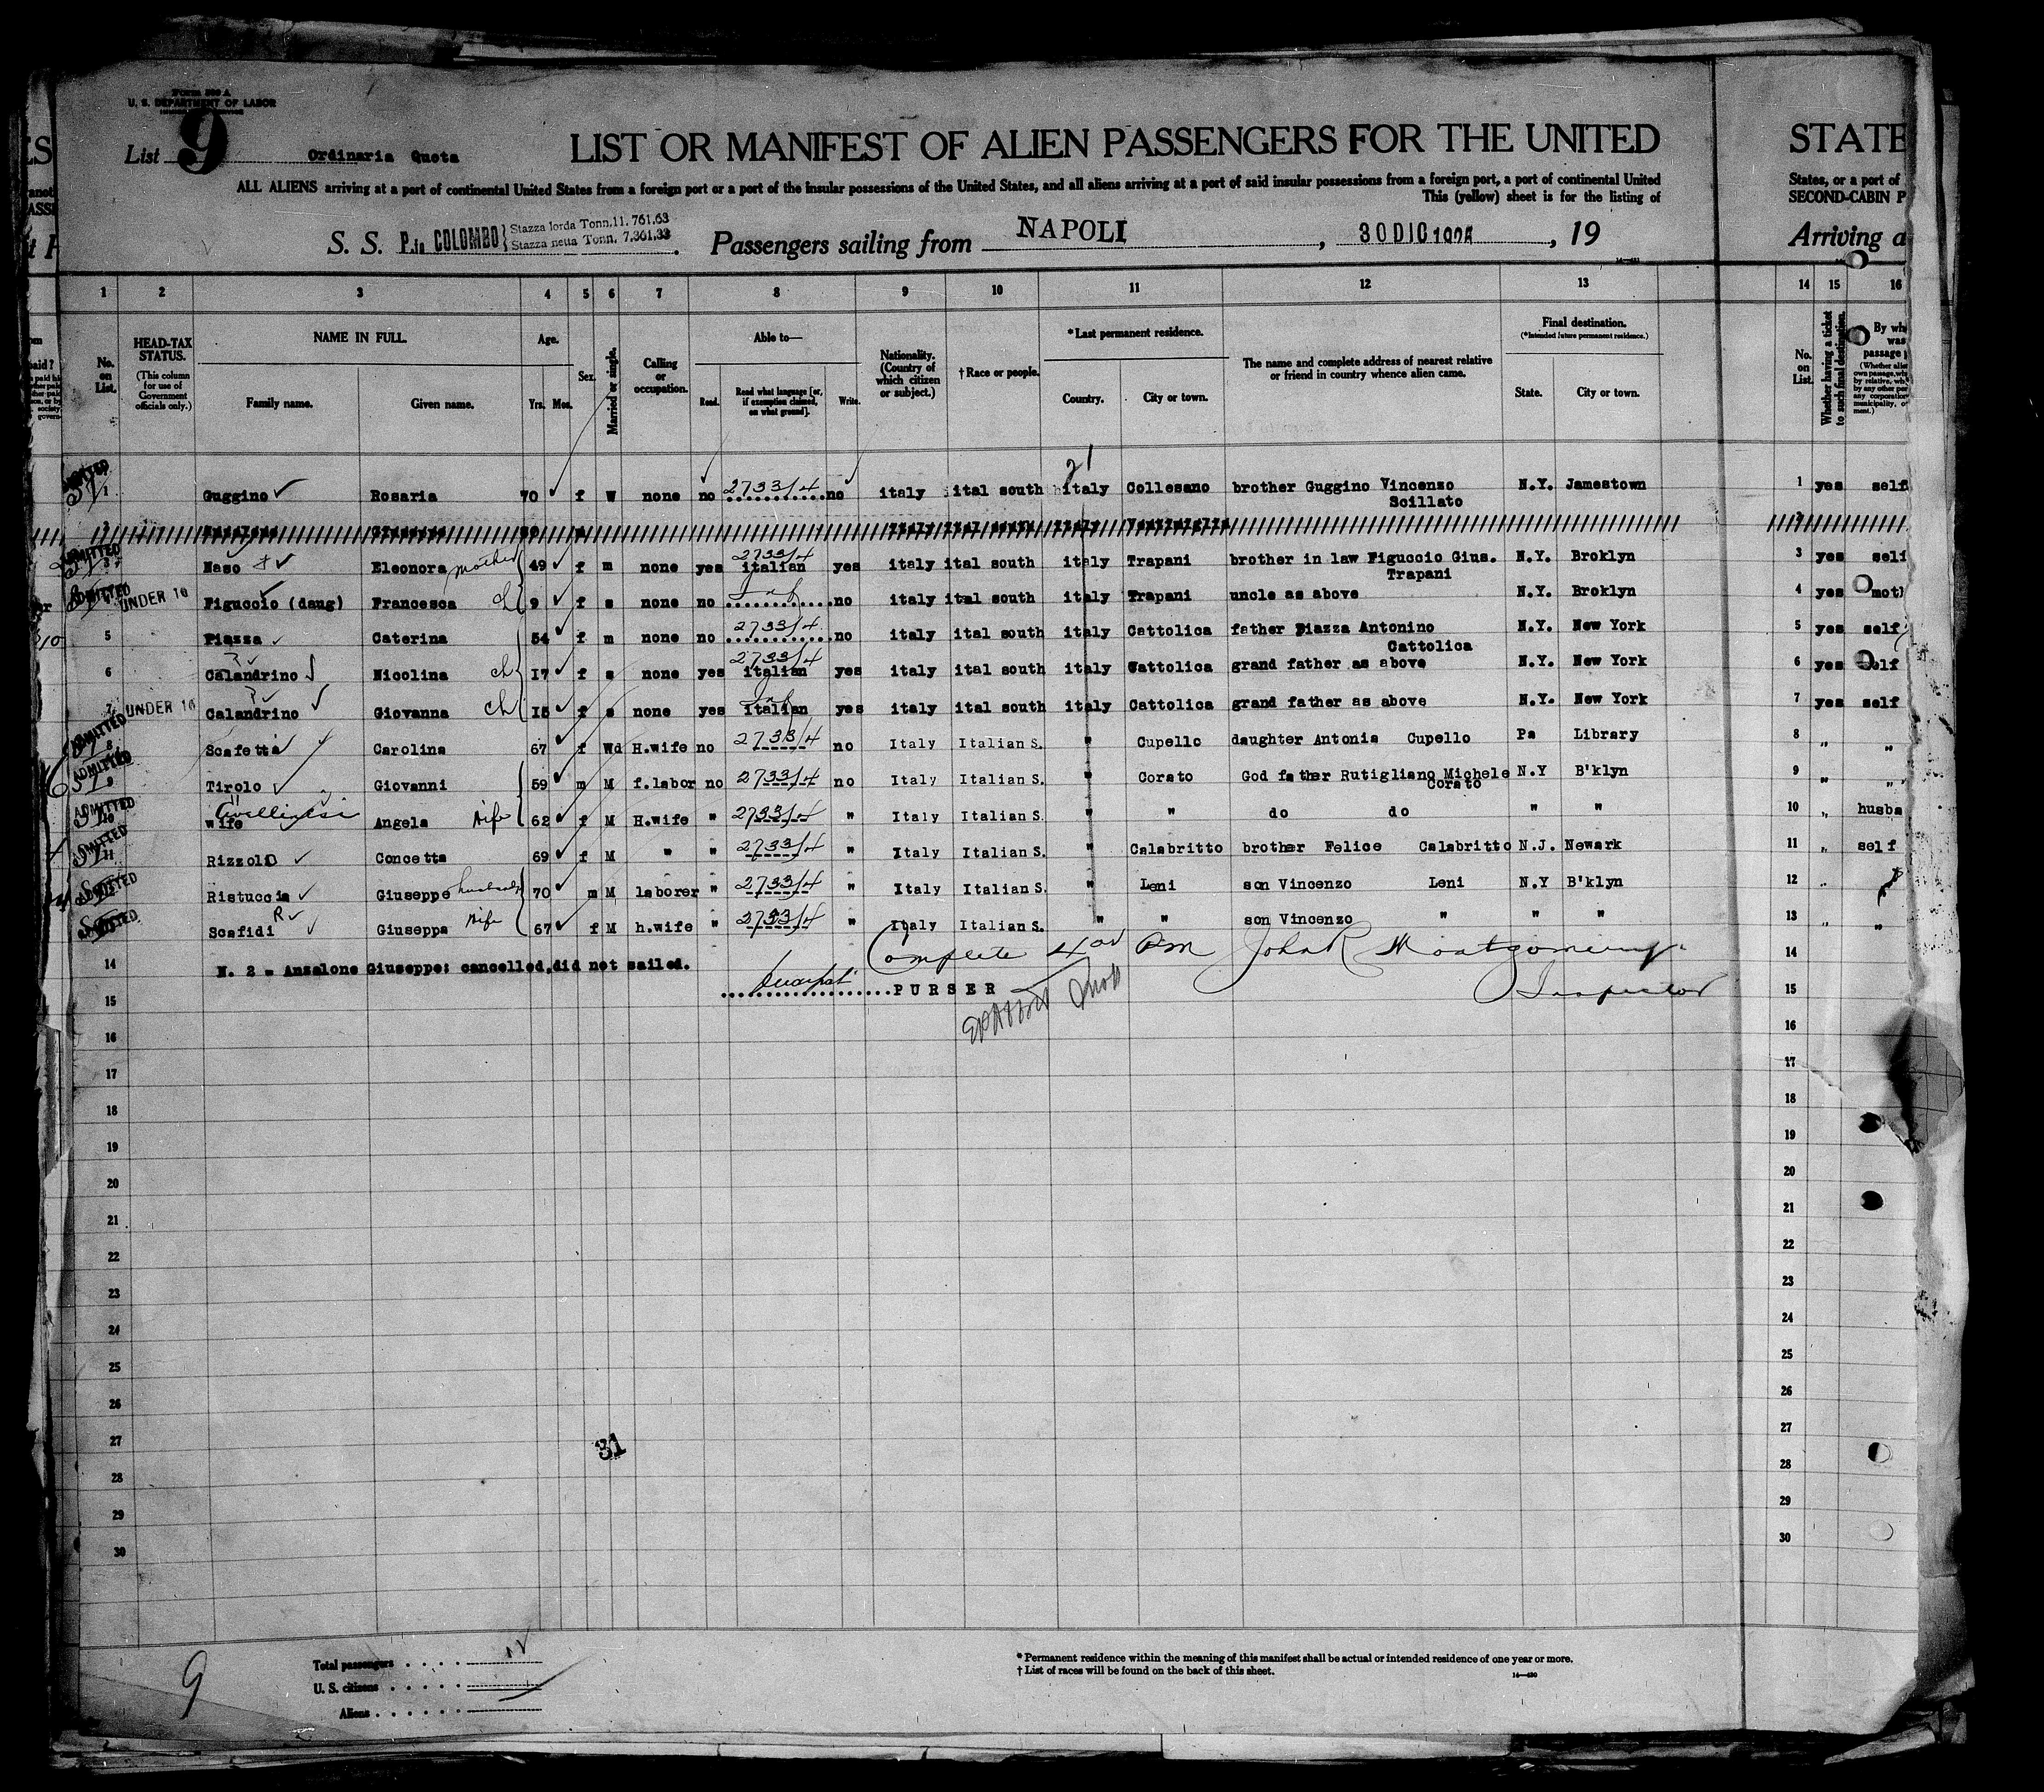 Form 500 A
U. S. DEPARTMENT OF LABOR
List 9 Ordinaria Quota LIST OR MANIFEST OF ALIEN PASSENGERS FOR THE UNITED STATE
ALL ALIENS arriving at a port of continental United States from a foreign port or a port of the insular possessions of the United States, and all aliens arriving at a port of said insular possessions from a foreign port, a port of continental United States, or a port of
This (yellow) sheet is for the listing of SECOND-CABIN P
S. S. P.ᵢₐ COLOMBO Stazza lorda Tonn. 11.761.63
Stazza netta Tonn. 7.361.33
Passengers sailing from NAPOLI, 30 DIC, 19 Arriving a
1 2 3 4 5 6 7 8 9 10 11 12 13 14 15 16
No. on List. HEAD-TAX STATUS. (This column for use of Government officials only.) NAME IN FULL. Family name. Given name. Age. Yrs. Mos. Sex. Married or single. Calling or occupation. Able to— Read. Read what language [or, if exemption claimed, on what ground]. Write. Nationality. (Country of which citizen or subject.) † Race or people. *Last permanent residence. Country. City or town. The name and complete address of nearest relative or friend in country whence alien came. Final destination. (*Intended future permanent residence.) State. City or town. No. on List. Whether having a ticket to such final destination.
ADMITTED 1 Guggino Rosaria 70 f W none no 2733/4 no italy ital south italy Collesano brother Guggino Vincenzo Scillato N.Y. Jamestown 1 yes self
ADMITTED 3 Naso Eleonora mother 49 f m none yes 2733/4 italian yes italy ital south italy Trapani brother in law Figuccio Gius. Trapani N.Y. Broklyn 3 yes self
ADMITTED 4 UNDER 16 Figuccio (daug) Francesca ch 9 f s none no no italy ital south italy Trapani uncle as above N.Y. Broklyn 4 yes moth
5 Piazza Caterina 54 f m none no 2733/4 no italy ital south italy Cattolica father Piazza Antonino Cattolica N.Y. New York 5 yes self
6 Calandrino Nicolina ch 17 f s none yes 2733/4 italian yes italy ital south italy Cattolica grand father as above N.Y. New York 6 yes self
7 UNDER 16 Calandrino Giovanna ch 15 f s none yes italian yes italy ital south italy Cattolica grand father as above N.Y. New York 7 yes self
ADMITTED 8 Scafetta Carolina 67 f Wd H.wife no 2733/4 no Italy Italian S. " Cupello daughter Antonia Cupello Pa Library 8 " "
ADMITTED 9 Tirolo Giovanni 59 m M f.labor no 2733/4 no Italy Italian S. " Corato God father Rutigliano Michele Corato N.Y B'klyn 9 " "
ADMITTED 10 wife Angela Wife 62 f M H.wife " 2733/4 " Italy Italian S. " " do do " " 10 " husba
ADMITTED 11 Rizzolo Concetta 69 f M " " 2733/4 " Italy Italian S. " Calabritto brother Felice Calabritto N.J. Newark 11 " self
ADMITTED Ristuccia Giuseppe husband 70 m M laborer " 2733/4 " Italy Italian S. " Leni son Vincenzo Leni N.Y B'klyn 12 "
ADMITTED Scafidi R Giuseppa Wife 67 f M h.wife " 2733/4 " Italy Italian S. " " son Vincenzo " " " 13 " "
14 N. 2 = Anzalone Giuseppe: cancelled.did not sailed. Complete PM John R Montgomery 14
15 PURSER Inspector 15
16 16
17 17
18 18
19 19
20 20
21 21
22 22
23 23
24 24
25 25
26 26
27 27
31
28 28
29 29
30 30
9
Total passengers
U. S. citizens
Aliens
* Permanent residence within the meaning of this manifest shall be actual or intended residence of one year or more.
† List of races will be found on the back of this sheet.